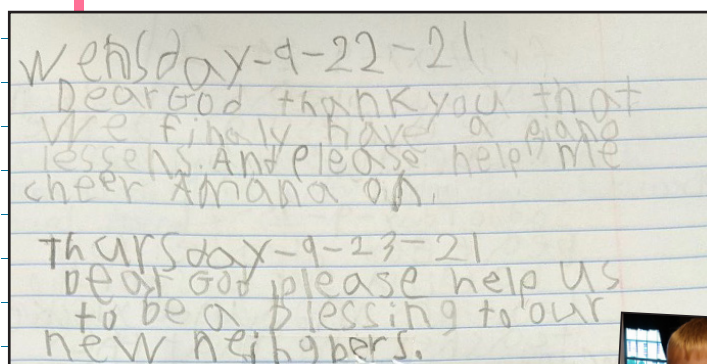 Wensday-9-22-21
Dear God thank you that
We finaly have a piano
lessens. And please help me
cheer Amana on.
Thursday-9-23-21
Dear God please help us
to be a blessing to our
new neihgbers.